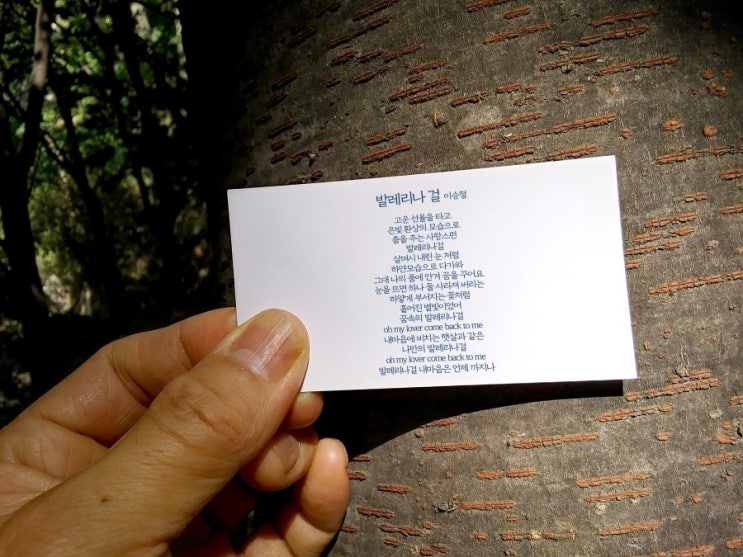 발레리나 걸 이승철
고운 선율을 타고
은빛 환상의 모습으로
춤을 추는 사랑스런
발레리나걸
살며시 내린 눈 처럼
하얀모습으로 다가와
그대 나의 품에 안겨 꿈을 꾸어요
눈을 뜨면 하나 둘 사라져 버리는
하얗게 부서지는 꽃처럼
흩어진 별빛이었어
꿈속의 발레리나걸
oh my lover come back to me
내마음에 비치는 햇살과 같은
나만의 발레리나걸
oh my lover come back to me
발레리나걸 내마음은 언제 까지나